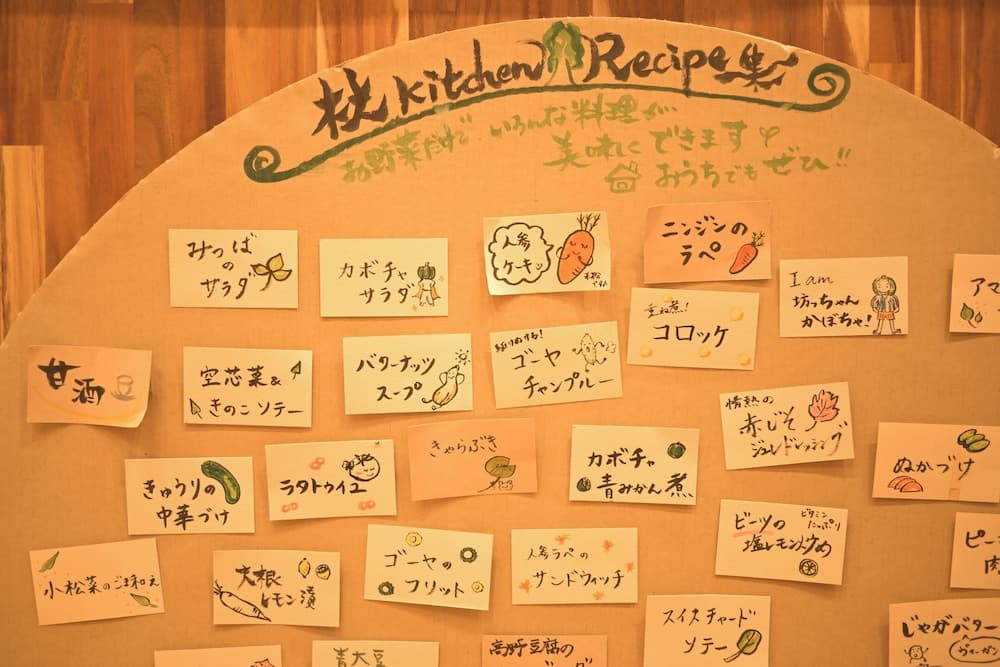 Kitchen Recipe集
お野菜だけで いろんな料理が
美味しくできます
おうちでもぜひ!!
みつば
の
サラダ
カボチャ
サラダ
人参
ケーキッ
ニンジンの
ラペ
I am
坊っちゃん
かぼちゃ!
アマ
甘酒
空芯菜&
きのこソテー
バターナッツ
スープ
ゴーヤ
チャンプルー
重ね煮!
コロッケ
情熱の
赤じそ
ジュレドレッシング
ぬかづけ
きゅうりの
中華づけ
ラタトゥイユ
きゃらぶき
カボチャ
青みかん煮
ビーツの
ビタミン
たっぷり
塩レモン炒め
ピー
肉
小松菜のごま和え
大根
レモン漬
ゴーヤの
フリット
人参ラペの
サンドウィッチ
スイスチャード
ソテー
じゃがバター
ヴィーガン
青大豆
高野豆腐の